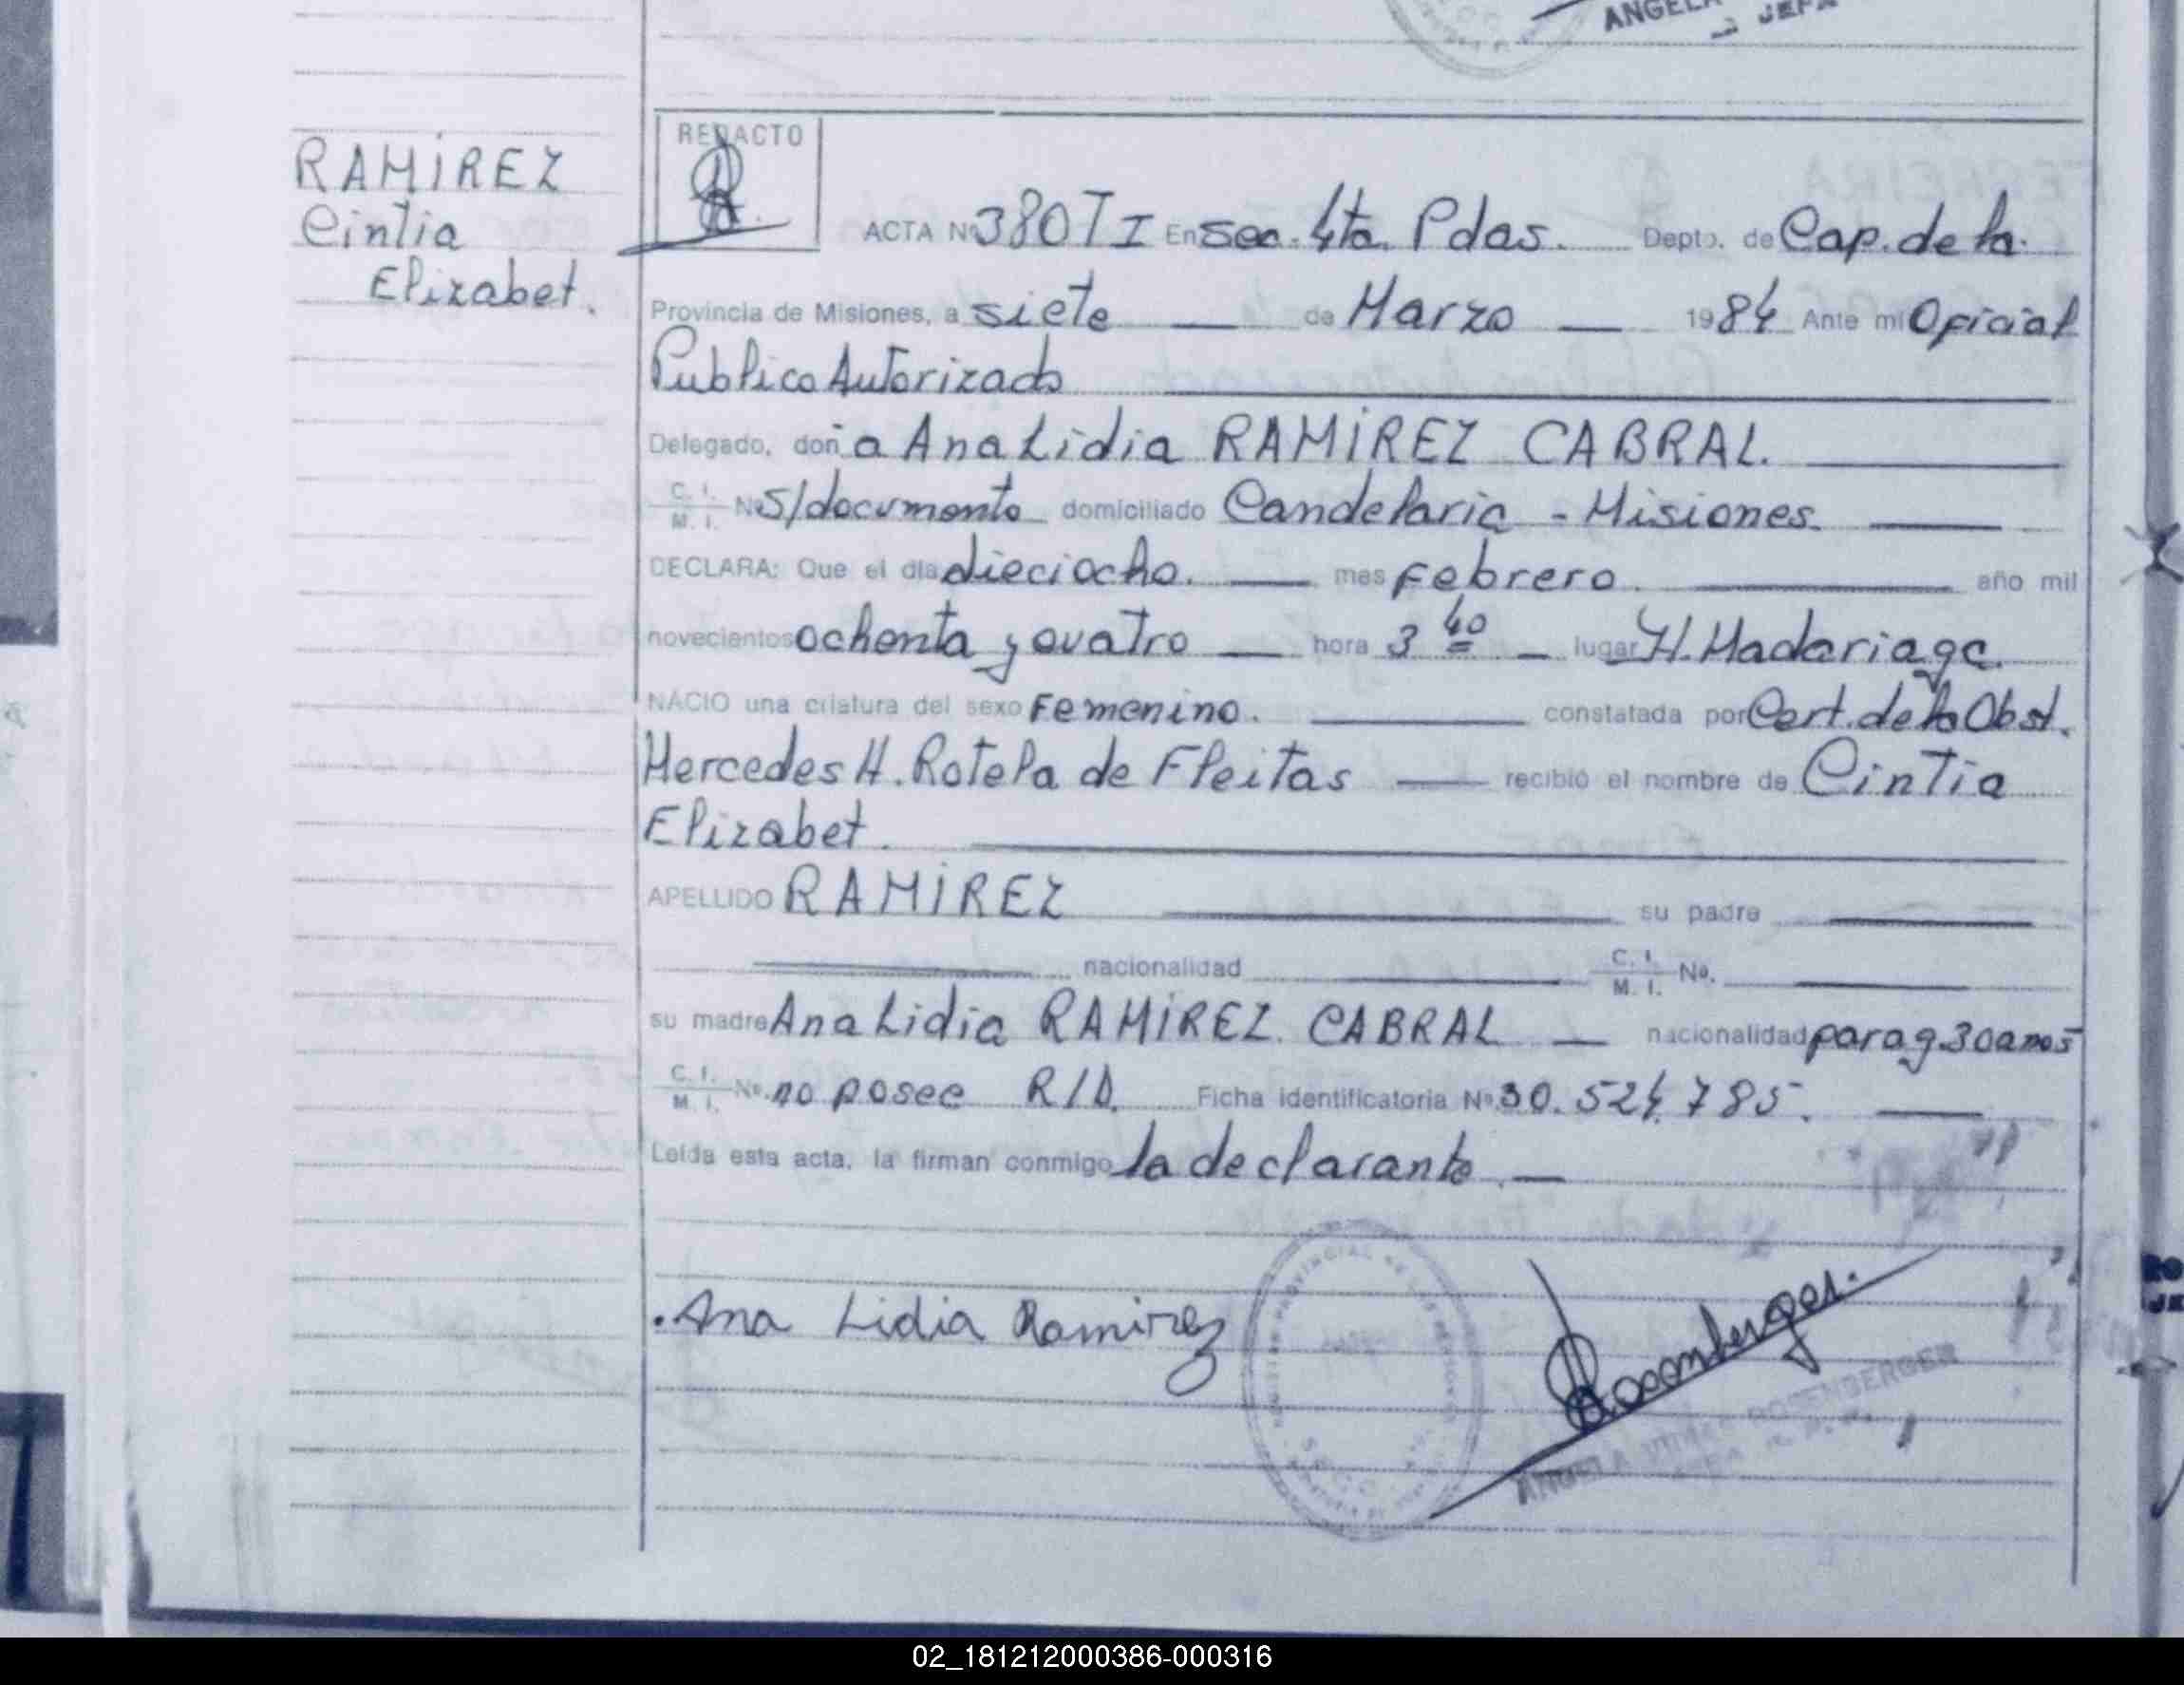 ANGELA
JEFA
RAMIREZ
Cintia
Elizabet.
REDACTO
ACTA Nº 380 T I En Sec. 4ta. Pdas. Depto. de Cap. de la
Provincia de Misiones, a siete de Marzo 1984 Ante mi Oficial
Publico Autorizado
Delegado, doña Ana Lidia RAMIREZ CABRAL.
C. I. M. I. Nº S/documento domiciliado Candelaria - Misiones.
DECLARA: Que el dia dieciocho. mes Febrero. año mil
novecientos ochenta y cuatro hora 3 40 lugar H. Madariaga.
NACIO una criatura del sexo Femenino. constatada por Cert. de la Obst.
Mercedes H. Rotela de Fleitas recibió el nombre de Cintia
Elizabet.
APELLIDO RAMIREZ su padre
nacionalidad C. I. M. I. No.
su madre Ana Lidia RAMIREZ CABRAL nacionalidad parag. 30 anos
C. I. M. I. Nº. no posee R/D. Ficha identificatoria Nº 30.524.785.
Leída esta acta, la firman conmigo la declarante.
.Ana Lidia Ramirez
Rosenberger.
ANGELA ROSENBERGER
JEFA
02_181212000386-000316